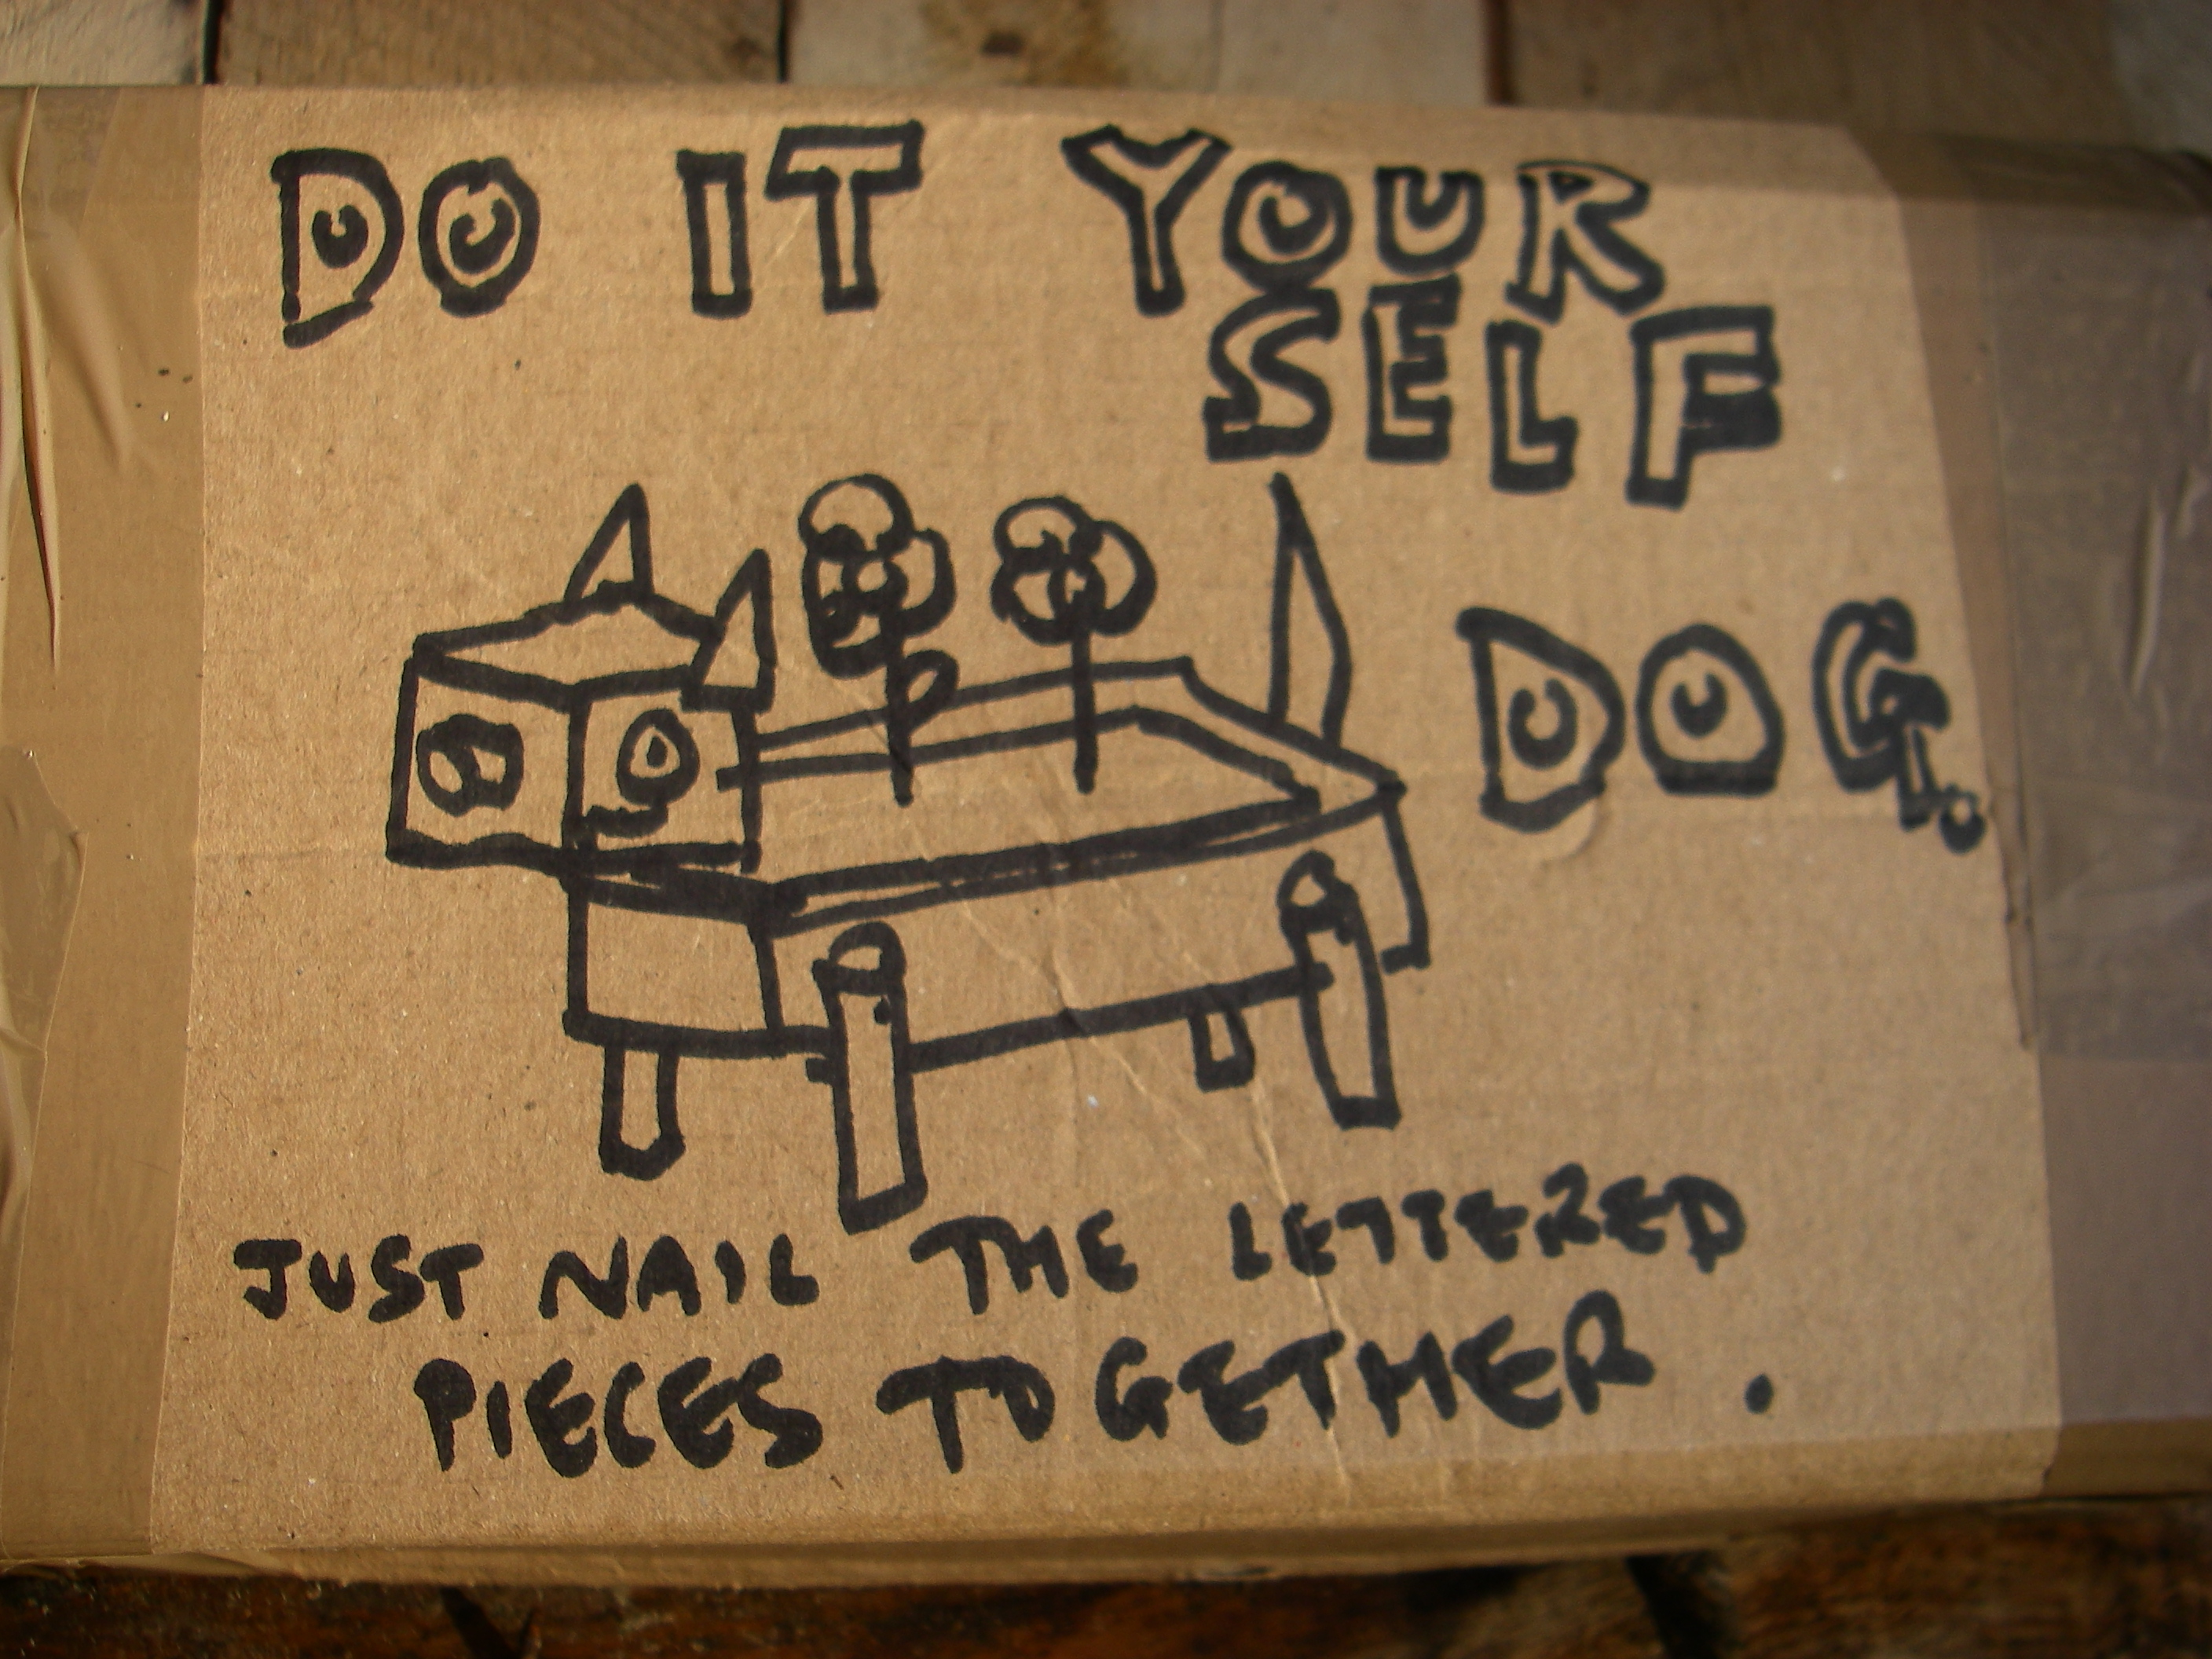 DO IT YOUR
SELF
DOG.
JUST NAIL THE LETTERED
PIECES TOGETHER.